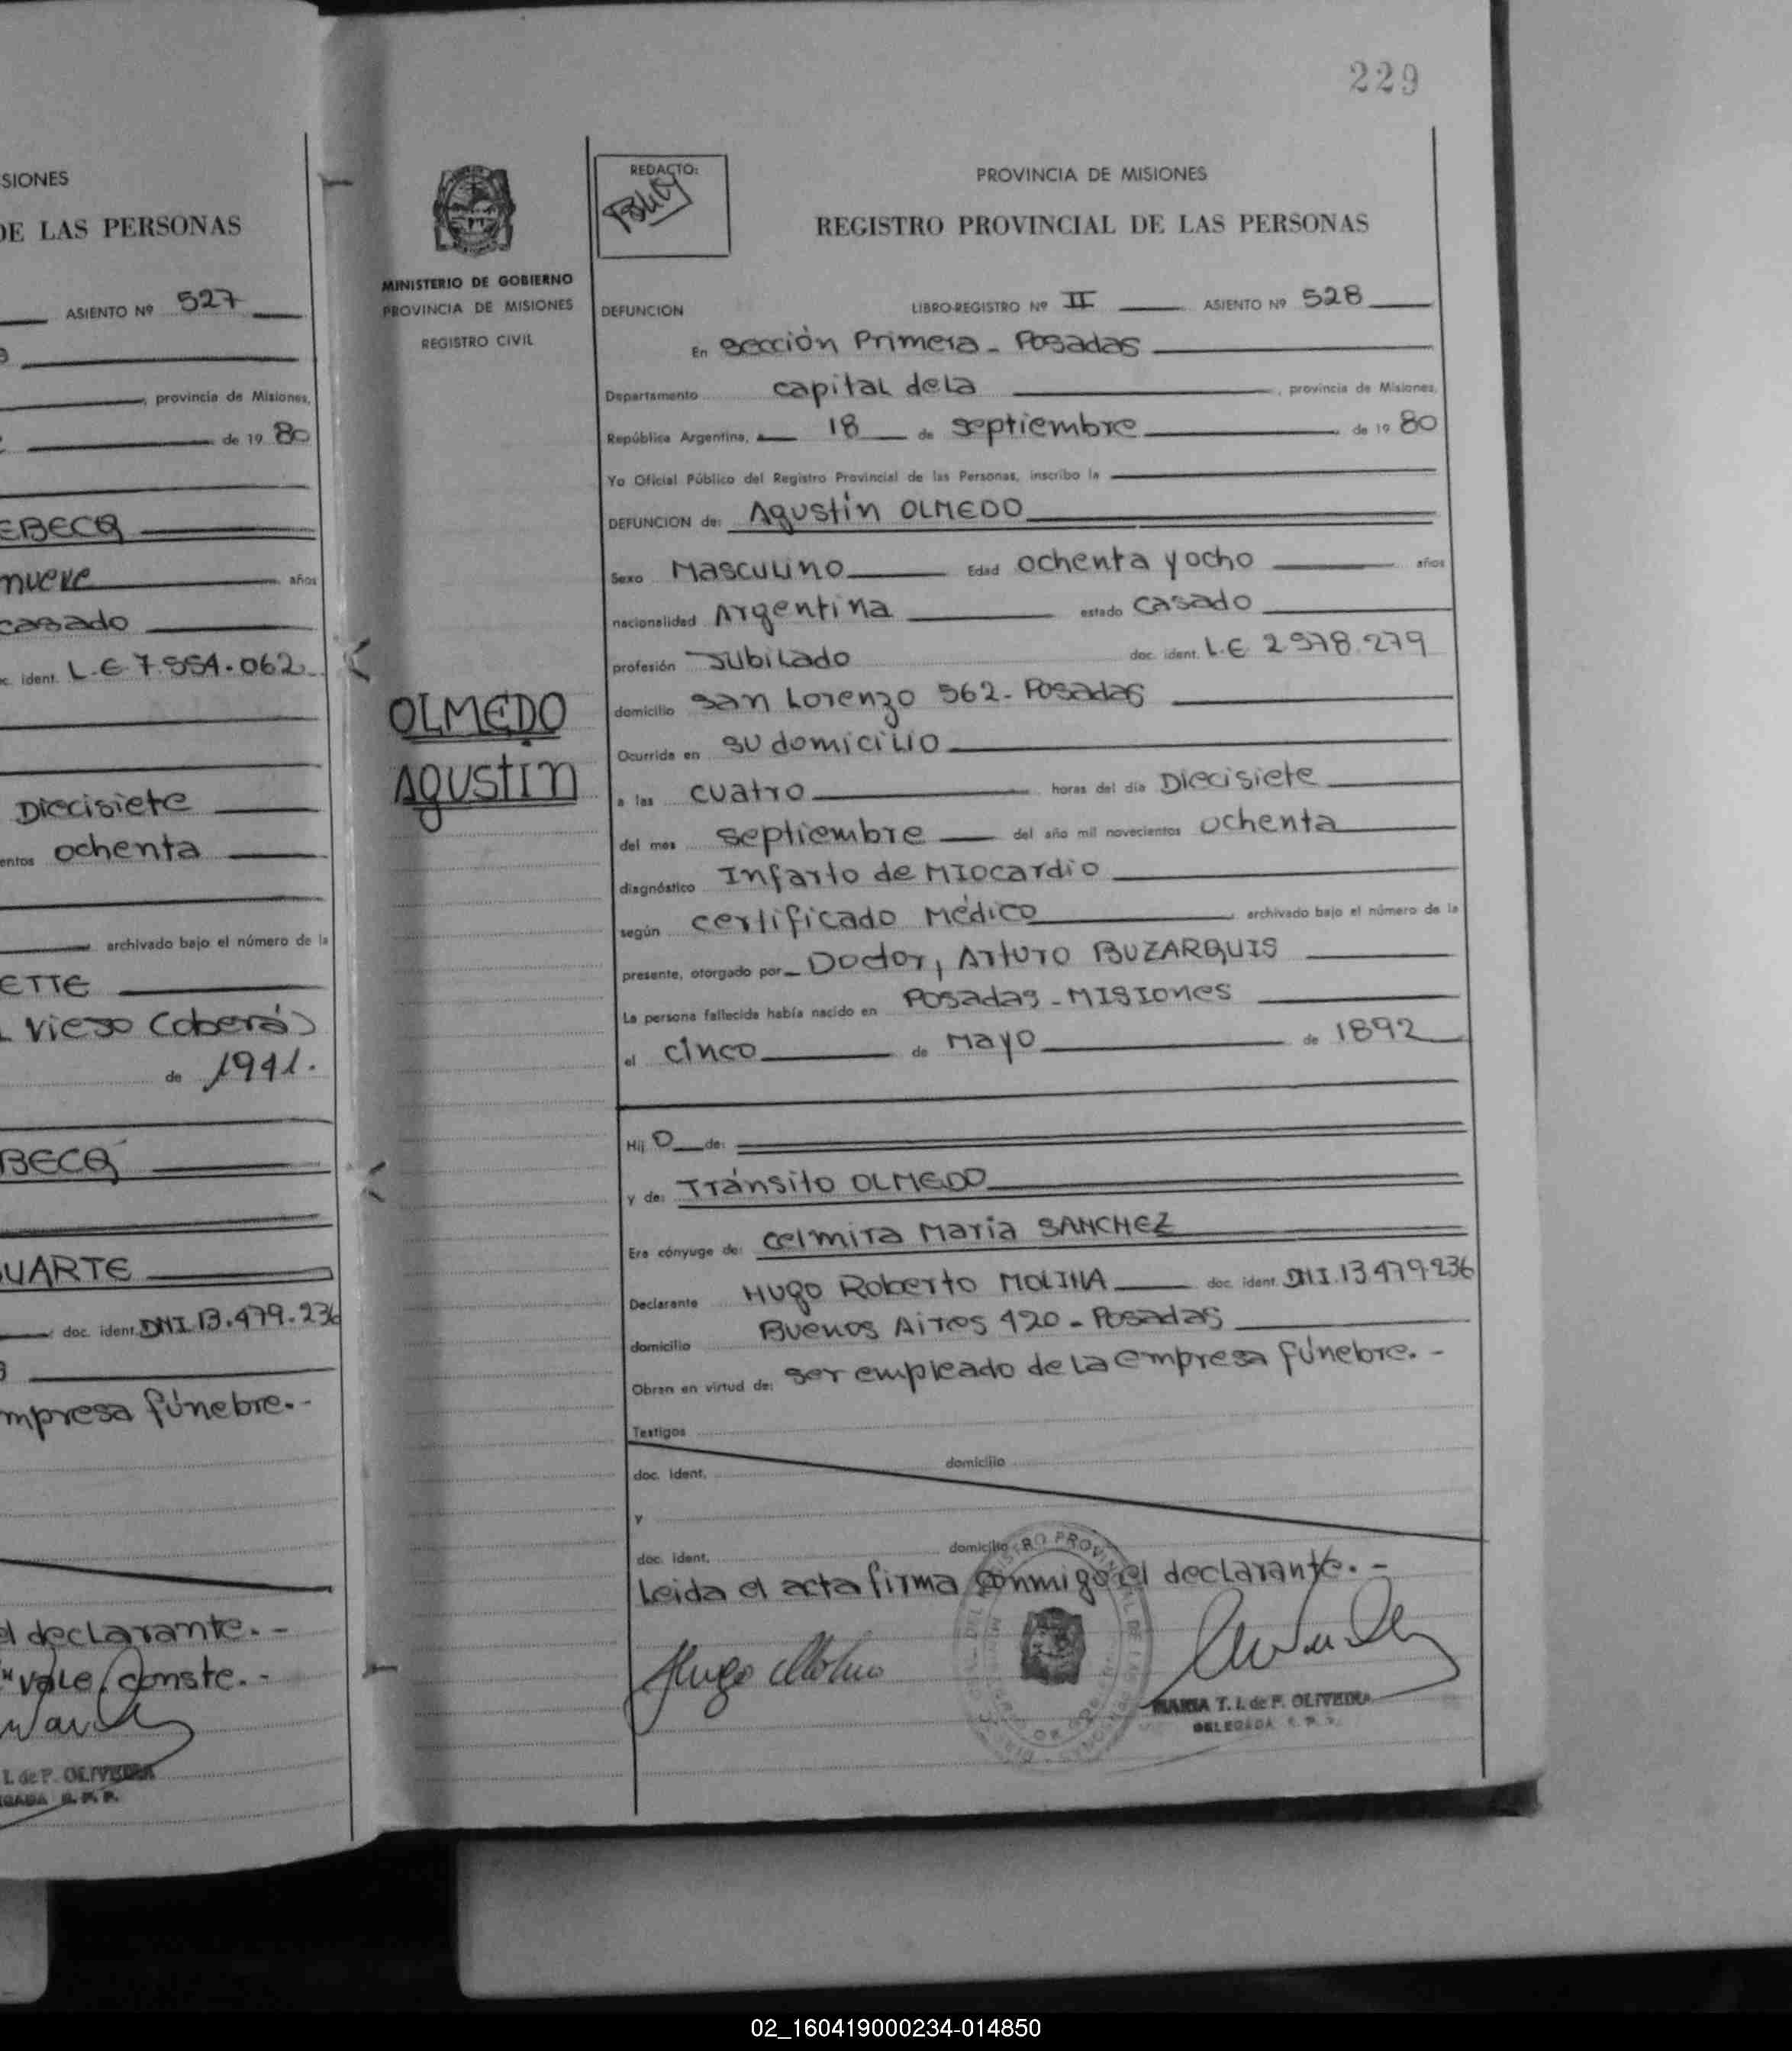 SIONES
DE LAS PERSONAS
ASIENTO Nº 527
provincia de Misiones,
de 19 80
EBECQ
nueve años
casado
c. ident. L.E 7.554.062
Diecisiete
entos ochenta
archivado bajo el número de la
ETTE
L. Vieso (coberá)
de 1941.
BECQ
UARTE
doc. ident. DNI 13.479.236
mpresa fúnebre.-
el declarante.-
"vale, conste.-
I. de P. OLIVEIRA
GADA R. P. P.
229
MINISTERIO DE GOBIERNO
PROVINCIA DE MISIONES
REGISTRO CIVIL
OLMEDO
Agustín
REDACTO:
PROVINCIA DE MISIONES
REGISTRO PROVINCIAL DE LAS PERSONAS
DEFUNCION LIBRO-REGISTRO Nº II ASIENTO Nº 528
En sección Primera - Posadas
Departamento capital de la , provincia de Misiones,
República Argentina, a 18 de septiembre de 19 80
Yo Oficial Público del Registro Provincial de las Personas, inscribo la
DEFUNCION de: Agustín OLMEDO
Sexo Masculino Edad ochenta y ocho años
nacionalidad Argentina estado casado
profesión Jubilado doc. ident. L.E 2.578.279
domicilio San Lorenzo 562 - Posadas
Ocurrida en su domicilio
a las cuatro horas del día Diecisiete
del mes septiembre del año mil novecientos ochenta
diagnóstico Infarto de Miocardio
según certificado Médico archivado bajo el número de la
presente, otorgado por Doctor, Arturo BUZARQUIS
La persona fallecida había nacido en Posadas - Misiones
el cinco de Mayo de 1892
Hij o de:
y de: Tránsito OLMEDO
Era cónyuge de: Celmira María SANCHEZ
Declarante Hugo Roberto MOLINA doc. ident. DNI. 13.479.236
domicilio Buenos Aires 420 - Posadas
Obran en virtud de: ser empleado de la empresa fúnebre.-
Testigos
doc. ident. domicilio
y
doc. ident. domicilio
Leida el acta firma conmigo el declarante.-
Hugo Molina
MARIA T. I. de P. OLIVEIRA
DELEGADA R. P. P.
02_160419000234-014850